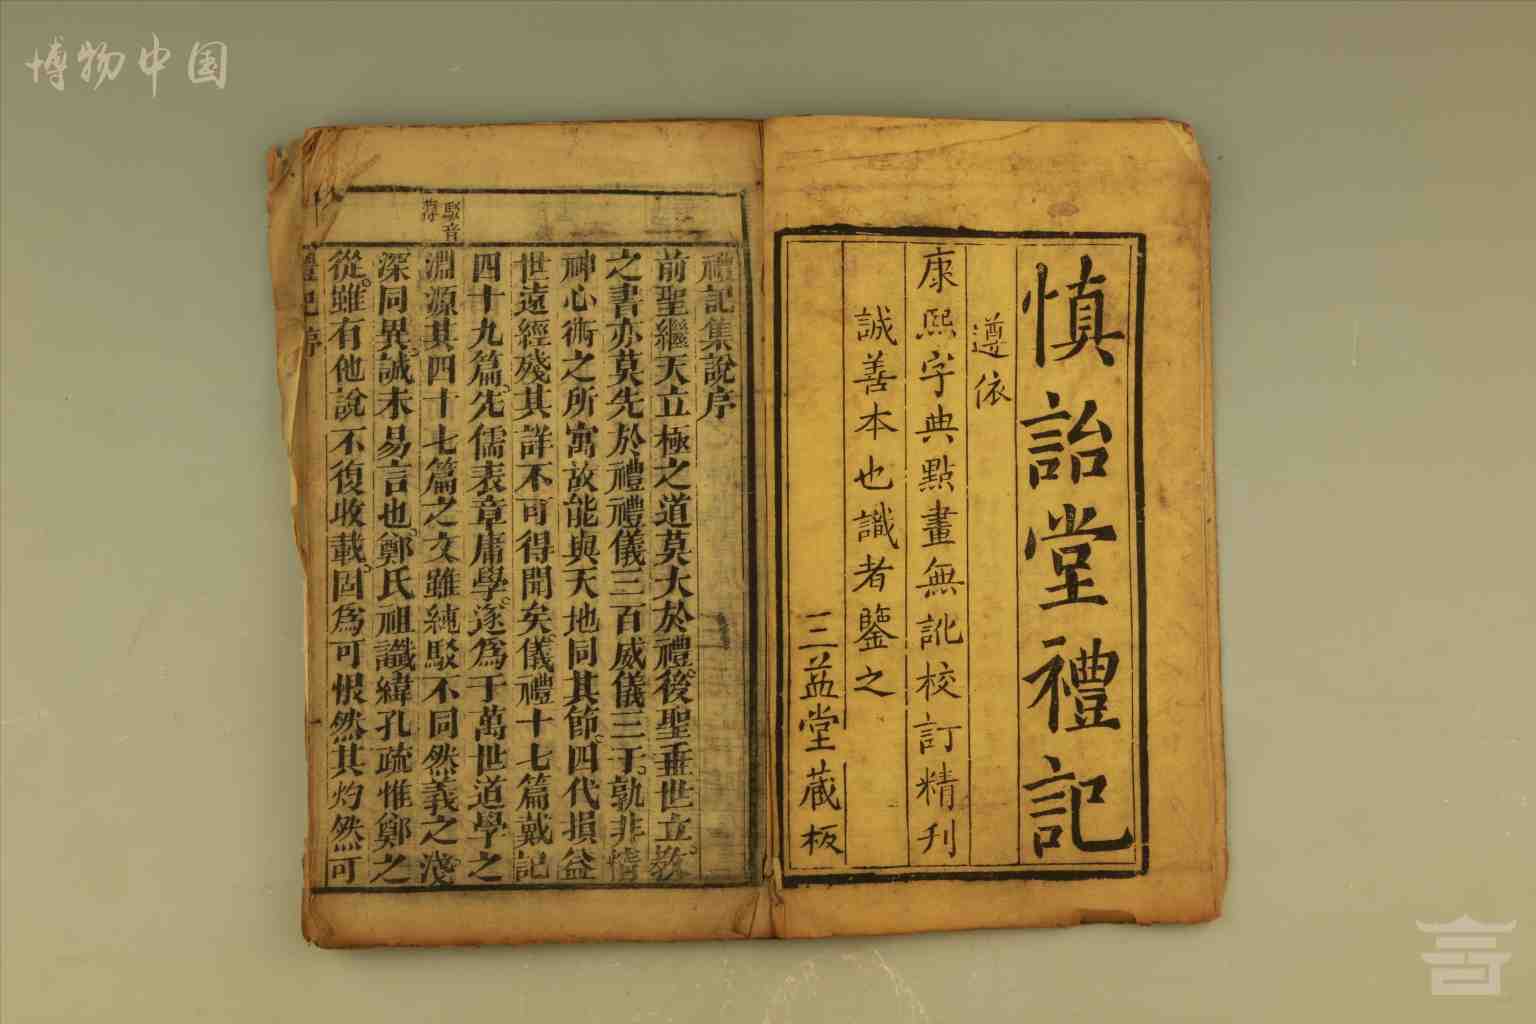 博物中国
慎詒堂禮記
遵依
康熙字典點畫無訛校訂精刋
誠善本也識者鑒之
三益堂藏板
駁音
禮記集說序
前聖繼天立極之道莫大於禮後聖垂世立教
之書亦莫先於禮禮儀三百威儀三千孰非精
神心術之所寓故能與天地同其節四代損益
世遠經殘其詳不可得聞矣儀禮十七篇戴記
四十九篇先儒表章庸學遂爲千萬世道學之
淵源其四十七篇之文雖純駁不同然義之淺
深同異誠未易言也鄭氏祖讖緯孔疏惟鄭之
從雖有他說不復收載固爲可恨然其灼然可
禮記序